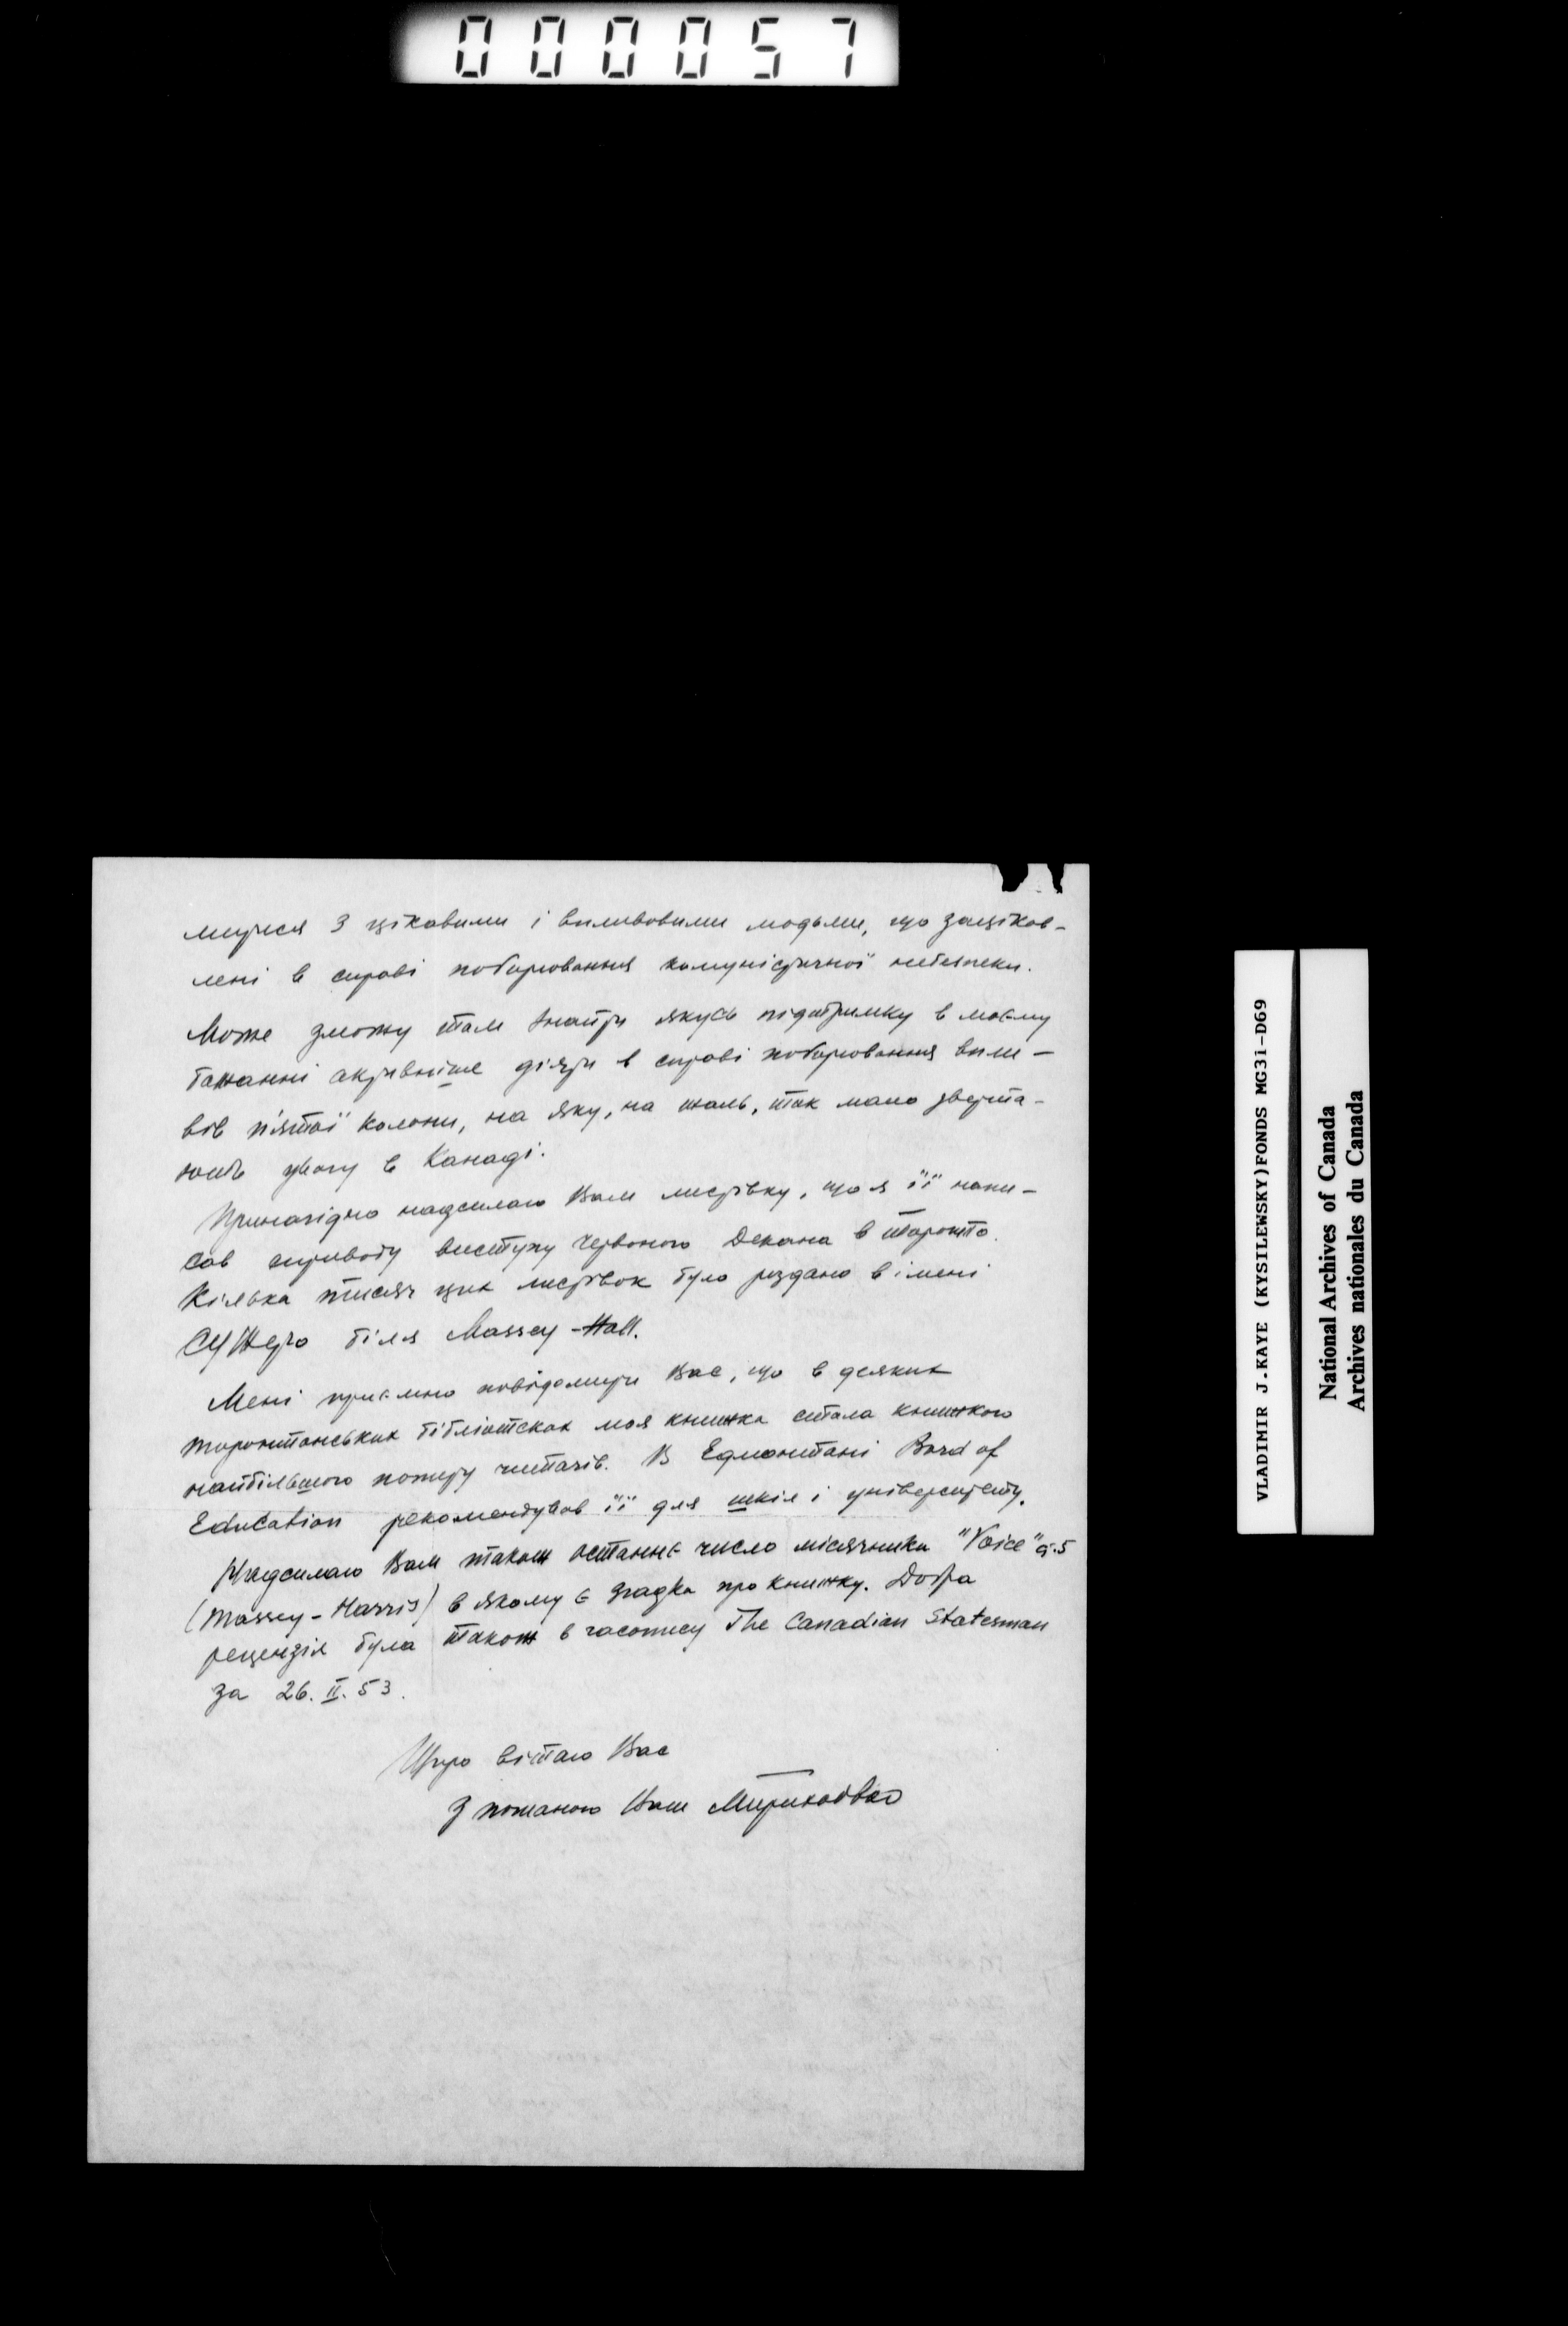 000057
митися з цікавими і впливовими людьми, що зацікав-
лені в справі поборювання комуністичної небезпеки.
Може зможу там знайти якусь підтримку в моєму
бажанні активніше діяти в справі поборювання впли-
вів п'ятої колони, на яку, на жаль, так мало зверта-
ють увагу в Канаді.
Принагідно надсилаю Вам листівку, що я її напи-
сав з приводу виступу Червоного Декана в Торонто.
Кілька тисяч цих листівок було роздано в імені
біля Massey-Hall.
Мені приємно повідомити Вас, що в деяких
торонтонських бібліотеках моя книжка стала книжкою
найбільшого попиту читачів. В Едмонтоні Bord of
Education рекомендував її для шкіл і університету.
Надсилаю Вам також останнє число місячника "Voice"
(Massey-Harris) в якому є згадка про книжку. Добра
рецензія була також в часопису The Canadian Statesman
за 26.II.53.
Щиро вітаю Вас
З пошаною Ваш
VLADIMIR J.KAYE (KYSILEWSKY)FONDS MG3i-D69
National Archives of Canada
Archives nationales du Canada